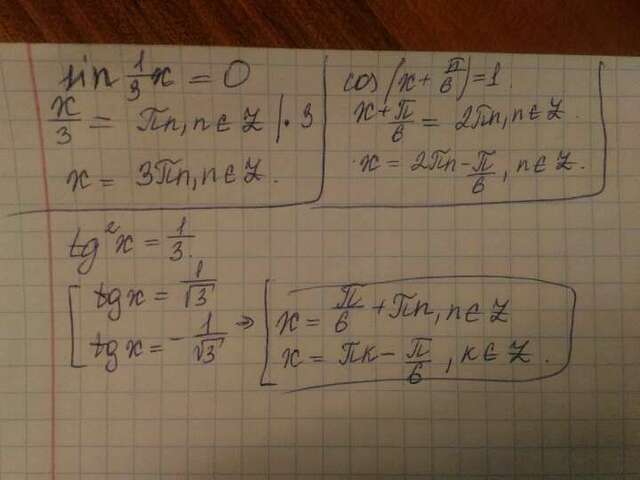 sin 1/3 x = 0
x/3 = πn, n ∈ Z | · 3
x = 3πn, n ∈ Z.
cos(x + π/6) = 1.
x + π/6 = 2πn, n ∈ Z.
x = 2πn - π/6, n ∈ Z.
tg²x = 1/3.
[ tgx = 1/√3
tgx = -1/√3 ⇒
[ x = π/6 + πn, n ∈ Z
x = πk - π/6, k ∈ Z.